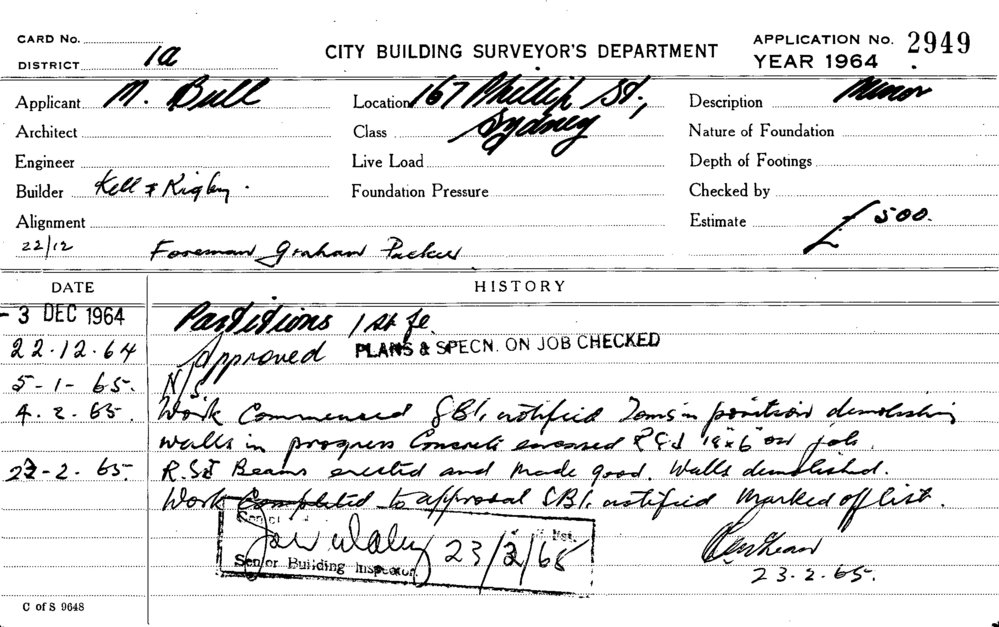 CARD No.
DISTRICT 1a
CITY BUILDING SURVEYOR'S DEPARTMENT
APPLICATION No. 2949
YEAR 1964
Applicant M. Bull
Location 167 Phillip St.,
Sydney
Description Minor
Architect
Class
Nature of Foundation
Engineer
Live Load
Depth of Footings
Builder Kell & Rigby.
Foundation Pressure
Checked by
Alignment
Estimate £500.
22/12 Foreman Graham Packer
DATE
HISTORY
- 3 DEC 1964 Partitions 1st fl.
22.12.64 Approved PLANS & SPECN. ON JOB CHECKED
5-1-65. N/S
4.2.65. Work Commenced SBI, notified in position demolishing
walls in progress Concrete encased 18"x6" on job.
23-2.65. R.S.J Beams erected and made good. Walls demolished.
Work Completed to approval SBI, notified Marked off list.
23/2/65
Senior Building Inspector.
23.2.65.
C of S 9648